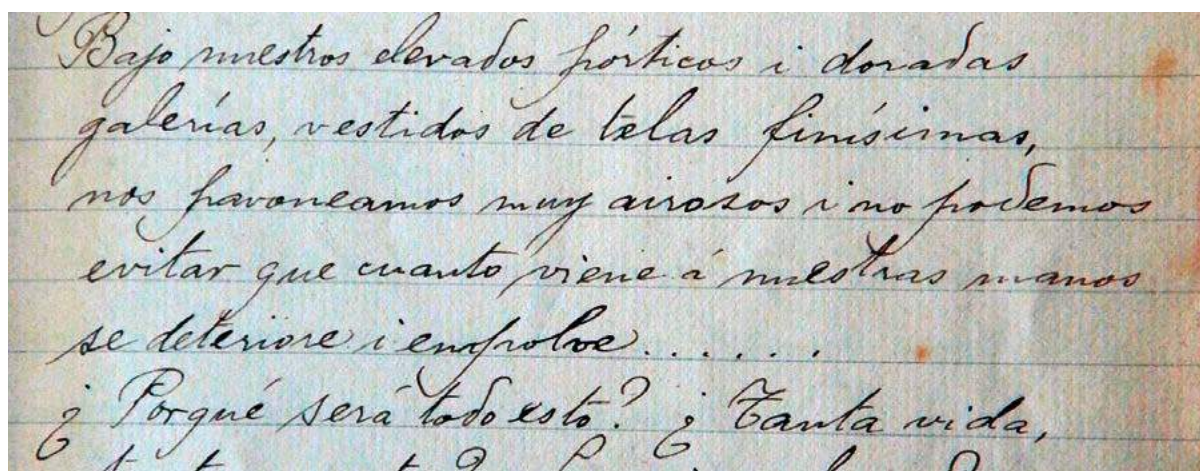 Bajo nuestros elevados pórticos i doradas
galerías, vestidos de telas finísimas,
nos pavoneamos muy airosos i no podemos
evitar que cuanto viene á nuestras manos
se deteriore i empolve......
¿Porqué será todo esto? ¿Tanta vida,